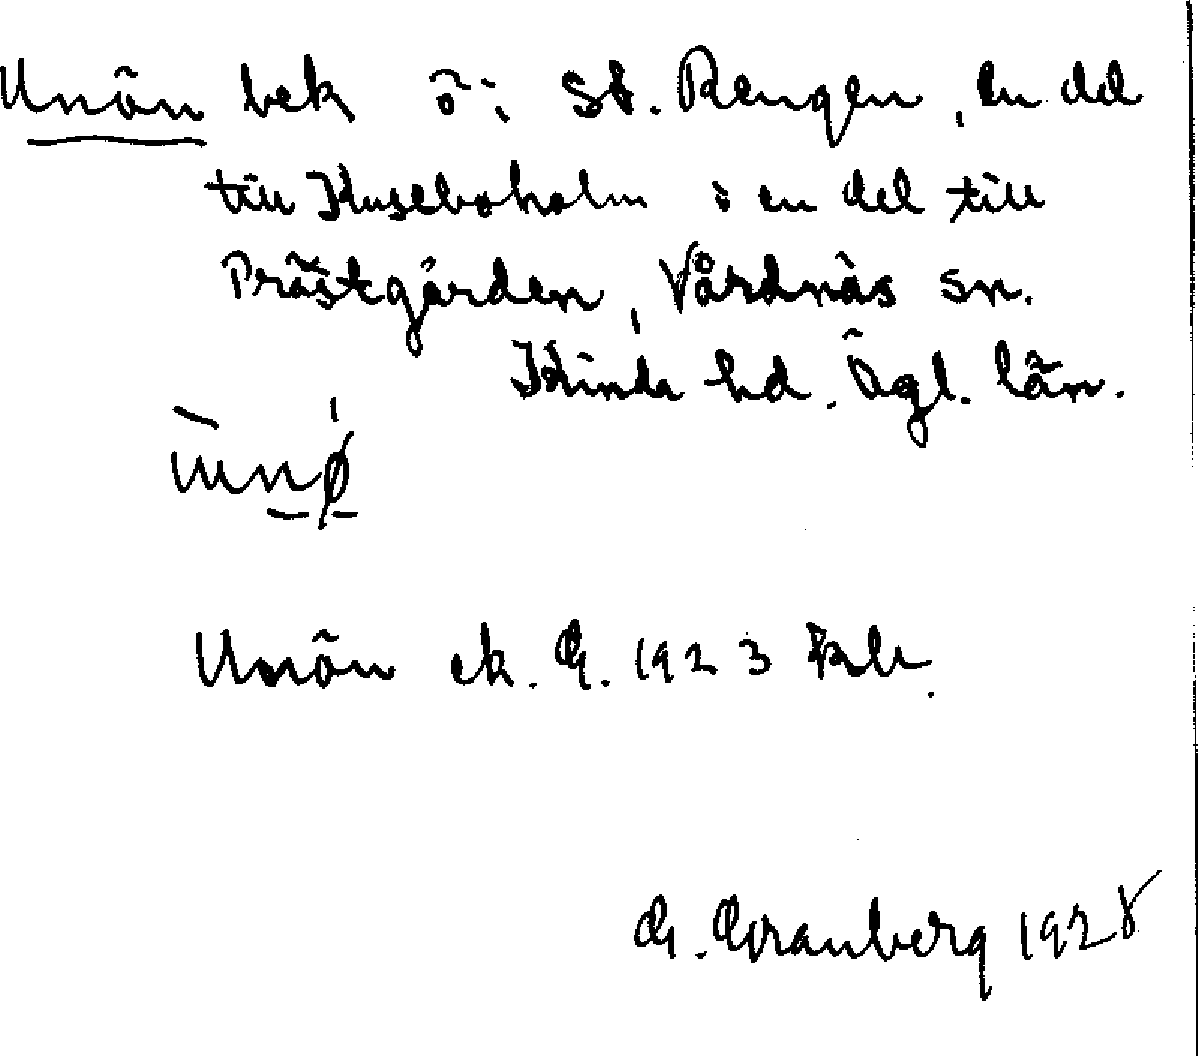 Unön bek ö i St. Rengen, en del
till Kuseboholm o en del till
Prästgården, Vårdnäs sn.
Kinda hd. Ögl. län.
ùnǿ
Unön ek. G. 1923 bl.
G. Granberg 1928